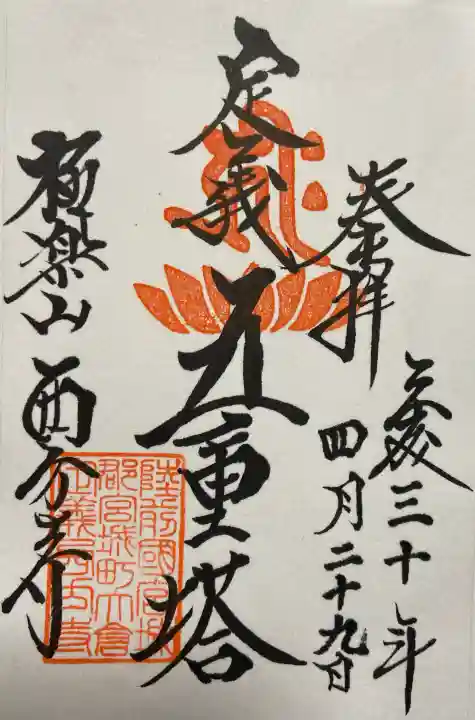 奉拝
平成三十年
四月二十九日
定義
五重塔
極楽山
西方寺
陸前國宮城
郡宮城町大倉
定義西方寺